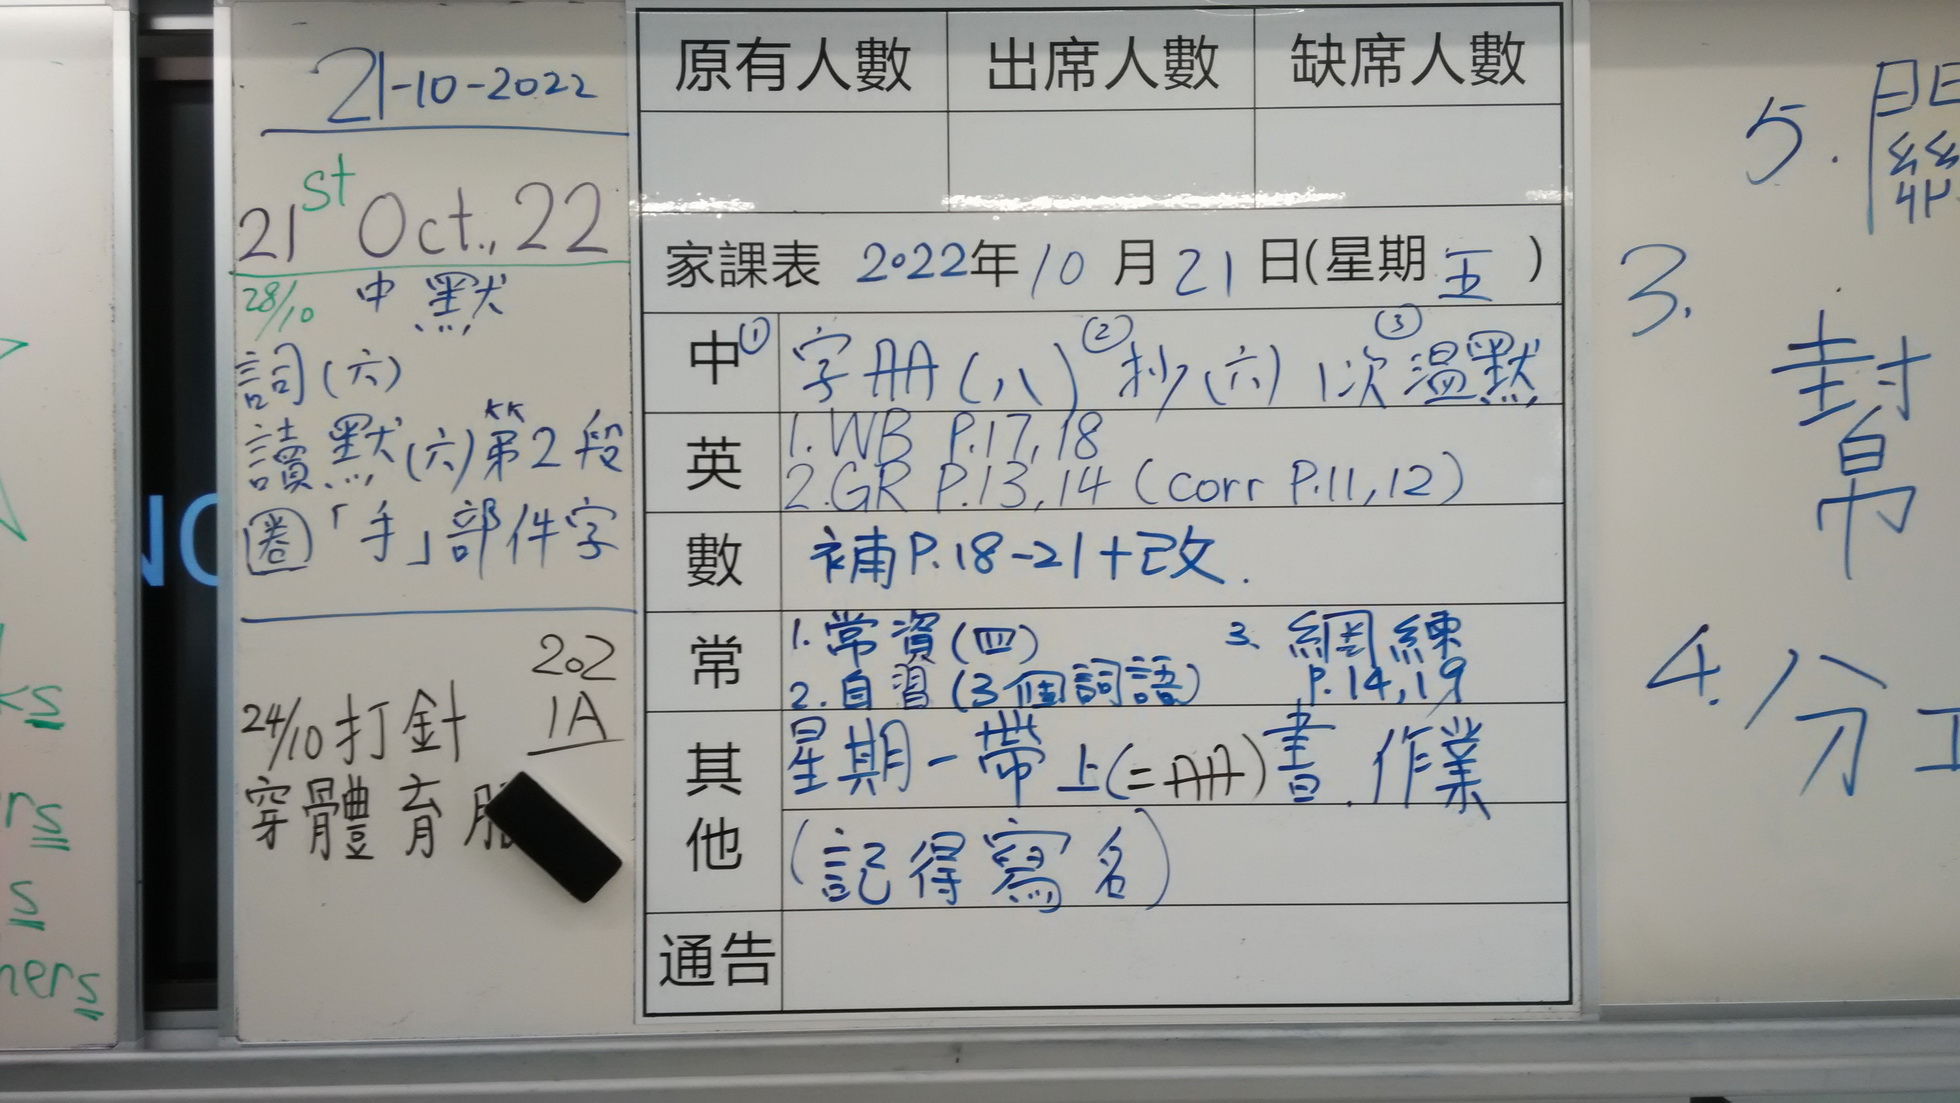 21-10-2022
21st Oct., 22
28/10 中默
詞(六)
讀默(六)第2段
圈「手」部件字
202
1A
24/10打針
穿體育
原有人數 出席人數 缺席人數
家課表 2022年10月21日(星期五)
中 ①字册(八) ②抄(六)1次 ③溫默
英 1.WB P.17,18
2.GR P.13,14 (corr P.11,12)
數 補P.18-21+改.
常 1.常資(四) 3.網練
2.自習(3個詞語) P.14,19
其他 星期一帶上(二册)書.作業
(記得寫名)
通告
5.
3.
封
帛
4.分工
s
s
s
hers